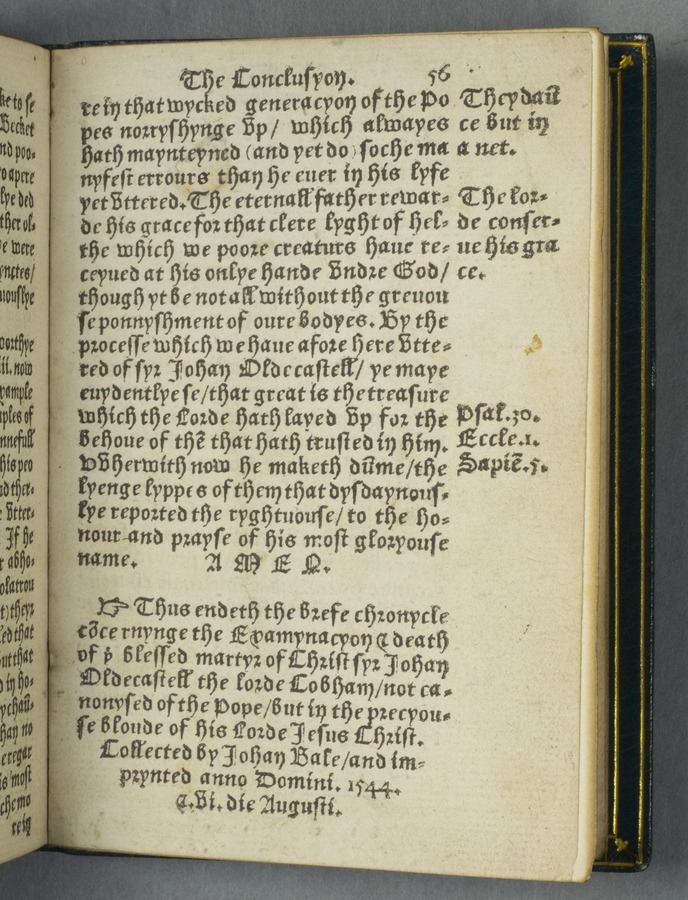 The Conclusyon. 56
re in that wycked generacyon of the Po
pes norryshynge vp/ which alwayes
hath maynteyned (and yet do) soche ma
nyfest errours than he euer in his lyfe
yet vttered. The eternall father rewar-
de his grace for that clere lyght of hel-
the which we poore creaturs haue re-
ceyued at his onlye hande vndre God/
though yt be not all without the greuou
se ponnyshment of oure bodyes. By the
processe which we haue afore here vtte-
red of syr Johan Oldecastell/ ye maye
euydentlye se/that great is the treasure
which the Lorde hath layed vp for the
behoue of thē that hath trusted in him.
Wherwith now he maketh dūme/the
lyenge lyppes of them that dysdaynous-
lye reported the ryghtuouse/to the ho-
nour and prayse of his most gloryouse
name. A M E N.
They daū
ce but in
a net.
The lor-
de conser-
ue his gra
ce.
Psal.30.
Eccle.1.
Sapiē.5.
☞ Thus endeth the brefe chronycle
cōcernynge the Examynacyon & death
of þe blessed martyr of Christ syr Johan
Oldecastell the lorde Cobham/not ca-
nonysed of the Pope/but in the precyou-
se bloude of his Lorde Jesus Christ.
Collected by Johan Bale/and im-
prynted anno Domini. 1544.
&.vi. die Augusti.